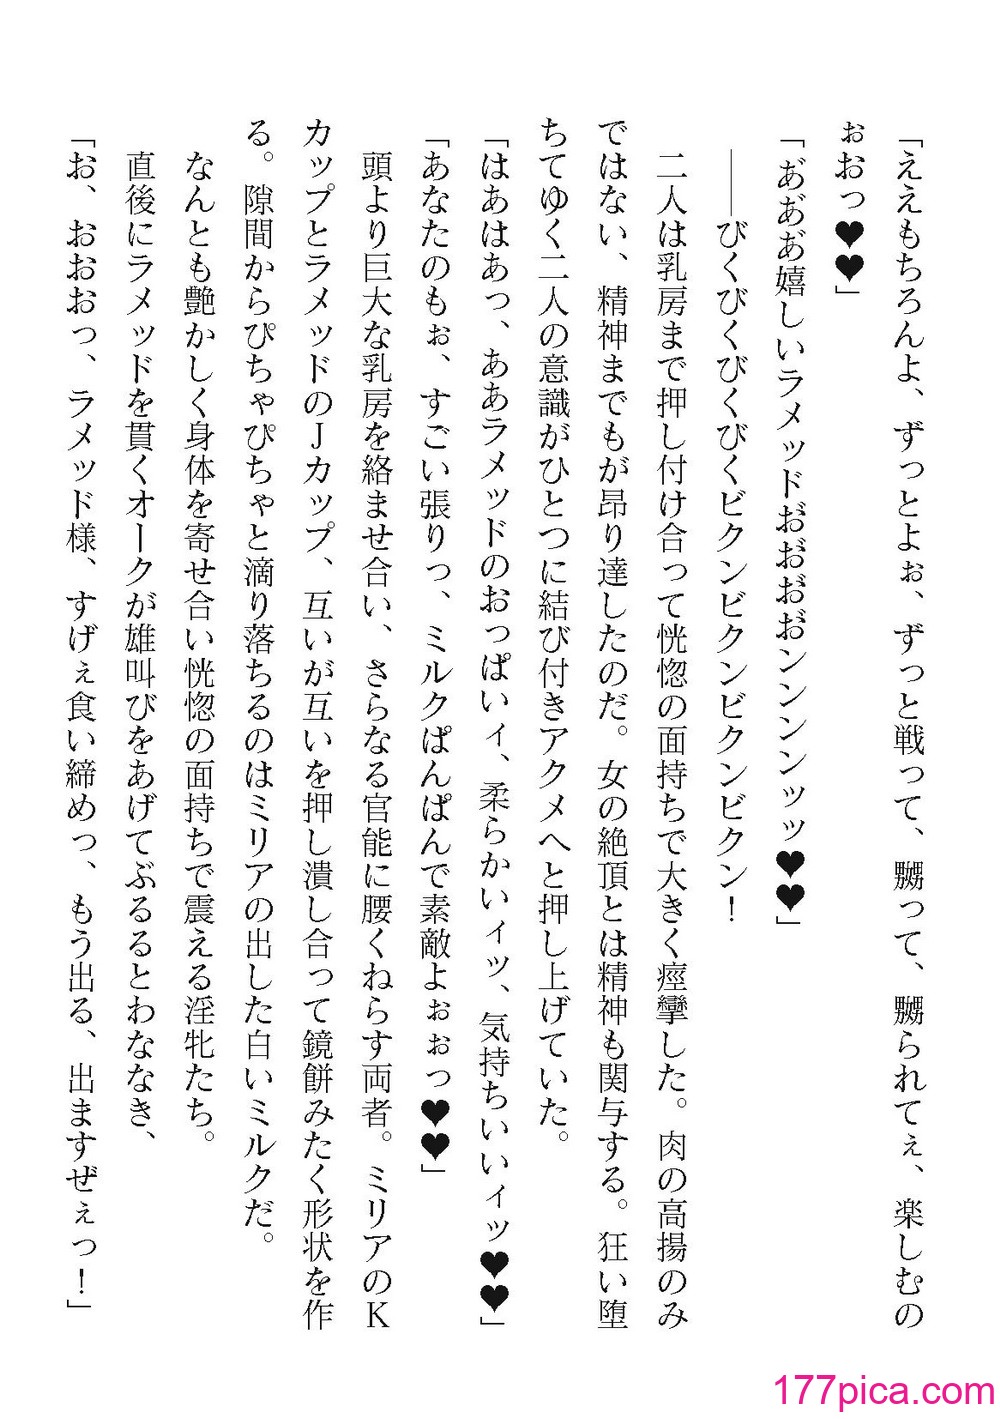 「ええもちろんよ、ずっとよぉ、ずっと戦って、嬲って、嬲られてぇ、楽しむの
ぉおっ♥♥」
「あ゙あ゙あ゙嬉しいラメッドお゙お゙お゙お゙ンンンンッッ♥♥」
――びくびくびくびくビクンビクンビクンビクン！
二人は乳房まで押し付け合って恍惚の面持ちで大きく痙攣した。肉の高揚のみ
ではない、精神までもが昂り達したのだ。女の絶頂とは精神も関与する。狂い堕
ちてゆく二人の意識がひとつに結び付きアクメへと押し上げていた。
「はあはあっ、ああラメッドのおっぱいィ、柔らかいィッ、気持ちいいィッ♥♥」
「あなたのもぉ、すごい張りっ、ミルクぱんぱんで素敵よぉぉっ♥♥」
頭より巨大な乳房を絡ませ合い、さらなる官能に腰くねらす両者。ミリアのK
カップとラメッドのJカップ、互いが互いを押し潰し合って鏡餅みたく形状を作
る。隙間からぴちゃぴちゃと滴り落ちるのはミリアの出した白いミルクだ。
なんとも艶かしく身体を寄せ合い恍惚の面持ちで震える淫牝たち。
直後にラメッドを貫くオークが雄叫びをあげてぶるるとわななき、
「お、おおおっ、ラメッド様、すげぇ食い締めっ、もう出る、出ますぜぇっ！」
177pica.com